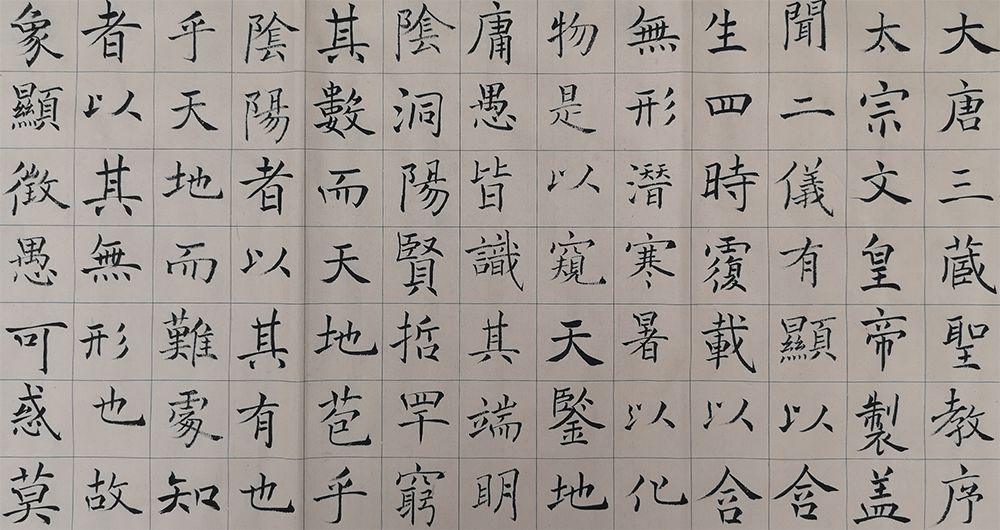 大唐三蔵聖教序
太宗文皇帝製盖
聞二儀有顯以含
生四時覆載以含
無形潛寒暑以化
物是以窺天鑒地
庸愚皆識其端眀
陰洞陽賢哲罕窮
其數而天地苞乎
陰陽者以其有也
乎天地而難處知
者以其無形也故
象顯徵愚可惑莫